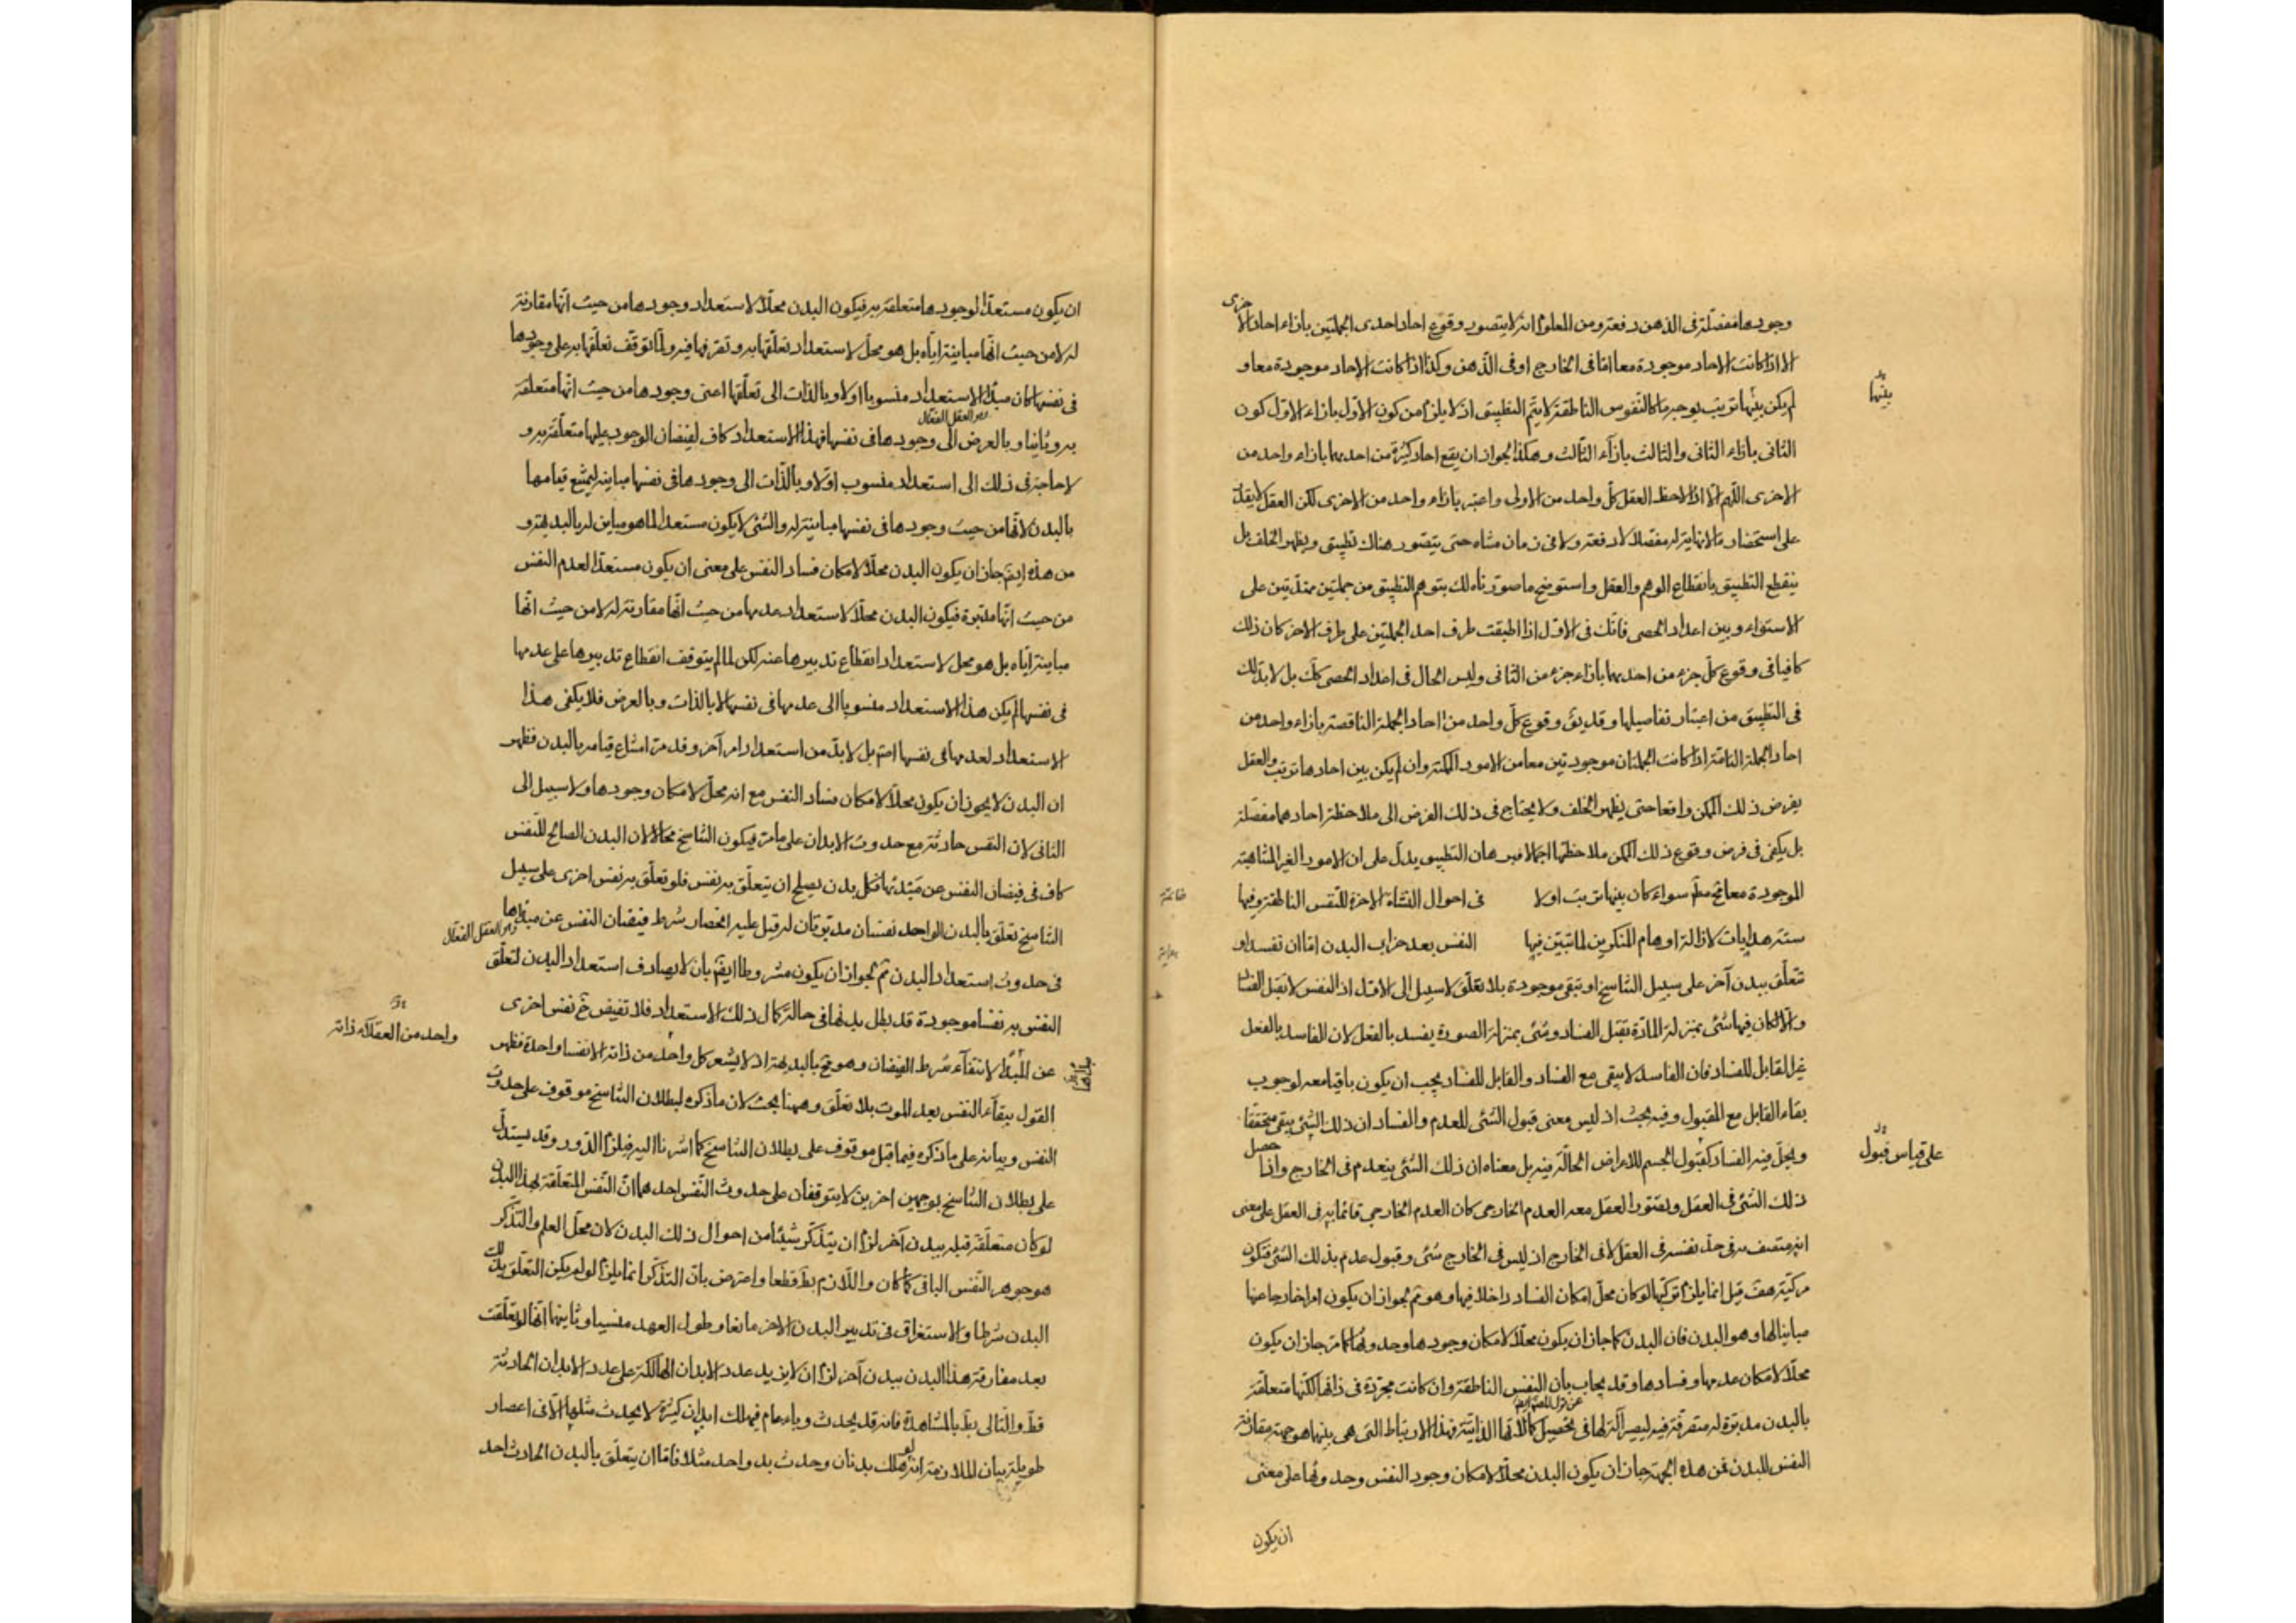 وجودها مفصلة فى الذهن دفعة ومن المعلوم انه لا يتصور وقوع احاد احدى الجملتين بازاء احاد الاخرى
الا اذا كانت الاحاد موجودة معا اما فى الخارج او فى الذهن وكذا اذا كانت الاحاد موجودة معا و
بينها
لم يكن بينها ترتيب بوجه ما كالنفوس الناطقة لا يتم التطبيق اذ لا يلزم من كون الاول بازاء الاول كون
الثانى بازاء الثانى والثالث بازاء الثالث وهكذا لجواز ان يقع احاد كثيرة من احديهما بازاء واحد من
الاخرى اللهم الا اذا لاحظ العقل كل واحد من الاولى واعتبره بازاء واحد من الاخرى لكن العقل لا يقدر
على استحضار ما لا نهاية له مفصلا لا دفعة ولا فى زمان متناه حتى يتصور هناك تطبيق ويظهر الخلف بل
ينقطع التطبيق بانقطاع الوهم والعقل واستوضح ما صورناه لك بتوهم التطبيق من جملتين ممتدتين على
الاستواء وبين اعداد الحصى فانك فى الاول اذا اطبقت طرف احد الجملتين على طرف الاخر كان ذلك
كافيا فى وقوع كل جزء من احديهما بازاء جزء من الثانى وليس الحال فى اعداد الحصى كك بل لا بد لك
فى التطبيق من اعتبار تفاصيلها وقد يق وقوع كل واحد من احاد الجملة الناقصة بازاء واحد من
احاد الجملة التامة اذا كانت الجملتان موجودتين معا من الامور الممكنة وان لم يكن بين احادها ترتيب والعقل
يفرض ذلك الممكن واقعا حتى يظهر الخلف ولا يحتاج فى ذلك الفرض الى ملاحظة احادهما مفصلة
بل يكفى فى فرض وقوع ذلك الممكن ملاحظتها اجمالا فبرهان التطبيق يدل على ان الامور الغير المتناهية
الموجودة معا مح مط سواء كان بينها ترتيب او لا خاتمة فى احوال النشاة الاخرة للنفس الناطقة وفيها
ستة هدايات لازالة اوهام المنكرين لما تبين فيها هداية النفس بعد خراب البدن اما ان تفسد او
تتعلق ببدن آخر على سبيل التناسخ او تبقى موجودة بلا تعلق لا سبيل الى الاول اذ النفس لا تقبل الفساد
والا لكان فيها شئ بمنزلة المادة تقبل الفساد وشئ بمنزلة الصورة يفسد بالفعل لان الفاسد بالفعل
غير القابل للفساد فان الفاسد لا يبقى مع الفساد والقابل للفساد يجب ان يكون باقيا معه لوجوب
بقاء القابل مع المقبول وفيه بحث اذ ليس معنى قبول الشئ للعدم والفساد ان ذلك الشئ يبقى متحققا
على قياس قبول
ويحل فيه الفساد كقبول الجسم للاعراض الحالة فيه بل معناه ان ذلك الشئ ينعدم فى الخارج واذا حصل
ذلك الشئ فى العقل ويتصور العقل معه العدم الخارجى كان العدم الخارجى قائما به فى العقل على معنى
انه متصف به فى حد نفسه فى العقل لا فى الخارج اذ ليس فى الخارج شئ وقبول عدم بذلك الشئ فتكون
مركبة هف قيل انما يلزم تركبها لو كان محل امكان الفساد داخلا فيها وهو مم لجواز ان يكون امرا خارجا عنها
مباينا لها وهو البدن فان البدن كما جاز ان يكون محلا لامكان وجودها وحدوثها كما مر جاز ان يكون
محلا لامكان عدمها وفسادها وقد يجاب بان النفس الناطقة وان كانت مجردة فى ذاتها لكنها متعلقة
بالبدن مدبرة له متصرفة فيه ليصير آلة لها فى تحصيل كمالاتها الذاتية فهذا الارتباط التى هى بينهما هو جهة مقارنة
النفس للبدن فمن هذه الجهة جاز ان يكون البدن محلا لامكان وجود النفس وحدوثها على معنى
ان يكون
ان يكون مستعدا لوجودها متعلقة به فيكون البدن محلا لاستعداد وجودها من حيث انها مقارنة
له لا من حيث انها مباينة اياه بل هو محل لاستعداد تعلقها به وتصرفها فيه ولما توقف تعلقها به على وجودها
فى نفسها كان مبدأ الاستعداد منسوبا اولا وبالذات الى تعلقها اعنى وجودها من حيث انها متعلقة
من العقل الفعال
به وثانيا وبالعرض الى وجودها فى نفسها فهذا الاستعداد كاف لفيضان الوجود عليها متعلقة به و
لا حاجة فى ذلك الى استعداد منسوب اولا وبالذات الى وجودها فى نفسها مباينة ليمتنع قيامها
بالبدن لانها من حيث وجودها فى نفسها مباينة له والشئ لا يكون مستعدا لما هو مباين له بالبديهة و
من هذه ايضا جاز ان يكون البدن محلا لامكان فساد النفس على معنى ان يكون مستعدا لعدم النفس
من حيث انها مدبرة فيكون البدن محلا لاستعداد عدمها من حيث انها مقارنة له لا من حيث انها
مباينة اياه بل هو محل لاستعداد انقطاع تدبيرها عنه لكن لما لم يتوقف انقطاع تدبيرها على عدمها
فى نفسها لم يكن هذا الاستعداد منسوبا الى عدمها فى نفسها لا بالذات وبالعرض فلا يكفى هذا
الاستعداد لعدمها فى نفسها اصلا بل لا بد من استعداد امر آخر وقد مر امتناع قيامه بالبدن فظهر
ان البدن لا يجوز ان يكون محلا لامكان فساد النفس مع انه محل لامكان وجودها ولا سبيل الى
الثانى لان النفس حادثة مع حدوث الابدان على ما مر فيكون التناسخ محالا لان البدن الصالح للنفس
كاف فى فيضان النفس عن مبدئها فكل بدن يصلح ان يتعلق به نفس فلو تعلق به نفس اخرى على سبيل
التناسخ تعلق بالبدن الواحد نفسان مدبرتان له قيل عليه انحصار شرط فيضان النفس عن مبدئها
وهو العقل الفعال
فى حدوث استعداد البدن مم لجواز ان يكون مشروطا ايضا بان لا يصادف استعداد البدن لتعلق
النفس به نفسا موجودة قد بطل بدنها فى حالة كمال ذلك الاستعداد فلا تفيض ح نفس اخرى
واحد من العقلاء ذاته
عن المبدأ لانتفاء شرط الفيضان وهو مح بالبديهة اذ لا يشعر كل واحد من ذاته الا نفسا واحدة فظهر
القول ببقاء النفس بعد الموت بلا تعلق وههنا بحث لان ما ذكره لبطلان التناسخ موقوف على حدوث
النفس وبيانه على ما ذكره فيما قبل موقوف على بطلان التناسخ كما اشرنا اليه فيلزم الدور وقد يستدل
على بطلان التناسخ بوجهين اخرين لا يتوقفان على حدوث النفس احدهما ان النفس المتعلقة بهذا البدن
لو كان متعلقة قبله ببدن آخر لزم ان يتذكر شيئا من احوال ذلك البدن لان محل العلم والتذكر
هو جوهر النفس الباقى كما كان واللازم بط قطعا واعترض بان التذكر انما يلزم لو لم يكن التعلق بذلك
البدن شرطا والاستغراق فى تدبير البدن الاخر مانعا وطول العهد منسيا وثانيهما انها لو تعلقت
بعد مفارقة هذا البدن ببدن آخر لزم ان لا يزيد عدد الابدان الهالكة على عدد الابدان الحادثة
قط والتالى بط بالمشاهدة فانه قد يحدث وباء عام فيهلك ابدان كثيرة لا يحدث مثلها الا فى اعصار
طويلة بيان الملازمة انه لو هلك بدنان وحدث بدن واحد مثلا فاما ان يتعلق بالبدن الحادث احد